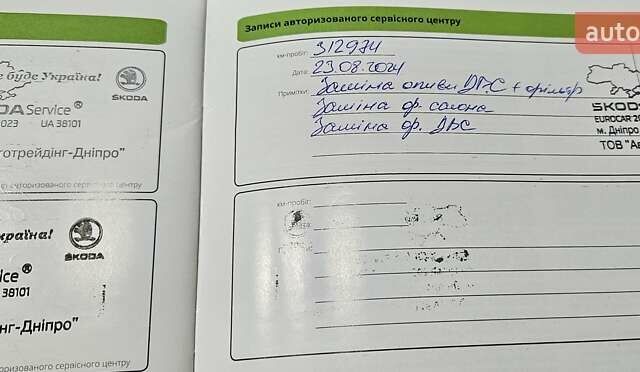 е буде Україна!
ŠKODA
DA Service®
023 UA 38101
тотрейдінг-Дніпро"
авторизованого сервісного центру
країна!
ŠKODA
ice®
38101
нг-Дніпро"
оризованого сервісного центру
Записи авторизованого сервісного центру
км-пробіг: 312974
Дата: 23.08.2024
Примітки: Заміна оливи ДВС + фільтр
Заміна ф. салона
Заміна ф. ДВС
auto
ŠKOD
EUROCAR 20
м. Дніпро
ТОВ "Ав
км-пробіг: